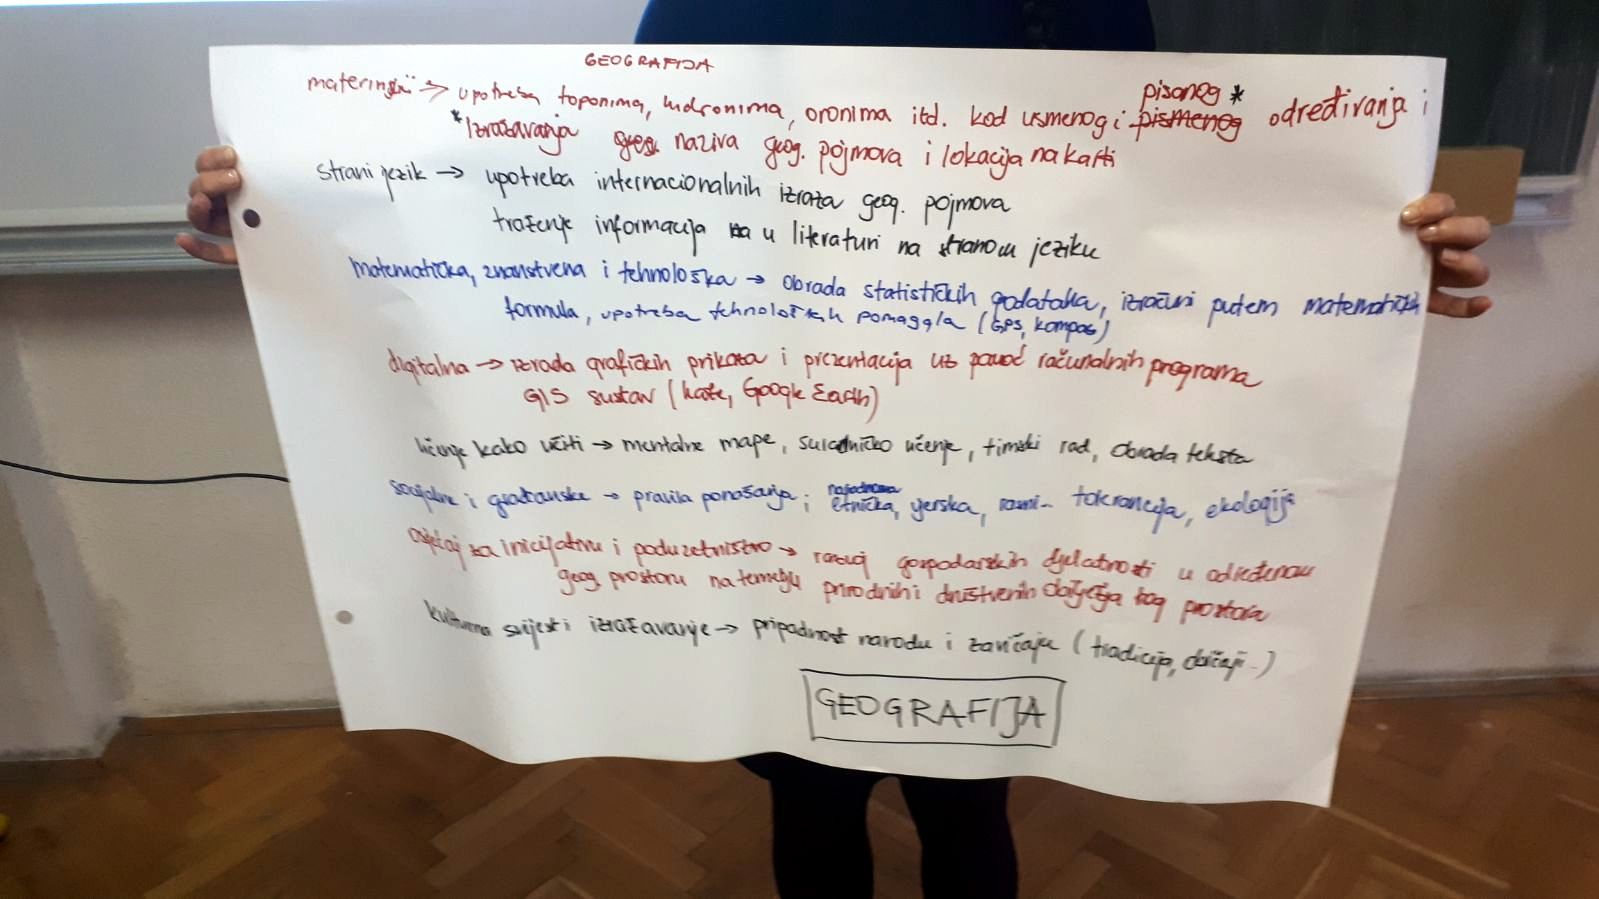 GEOGRAFIJA
materinski → upotreba toponima, hidronima, oronima itd. kod usmenog i pismenog pisanog * određivanja i
*izražavanja geog. naziva geog. pojmova i lokacija na karti
strani jezik → upotreba internacionalnih izraza geog. pojmova
traženje informacija na u literaturi na stranom jeziku
matematička, znanstvena i tehnološka → obrada statističkih podataka, izračuni putem matematičkih
formula, upotreba tehnoloških pomagala (GPS, kompas)
digitalna → izrada grafičkih prikaza i prezentacija uz pomoć računalnih programa
GIS sustav (karte, Google Earth)
učenje kako učiti → mentalne mape, suradničko učenje, timski rad, obrada teksta
socijalne i građanske → pravila ponašanja; etnička, vjerska, tolerancija, ekologija
osjećaj za inicijativu i poduzetništvo → razvoj gospodarskih djelatnosti u određenom
geog. prostoru na temelju prirodnih i društvenih obilježja tog prostora
kulturna svijest i izražavanje → pripadnost narodu i zavičaju (tradicija, običaji..)
GEOGRAFIJA